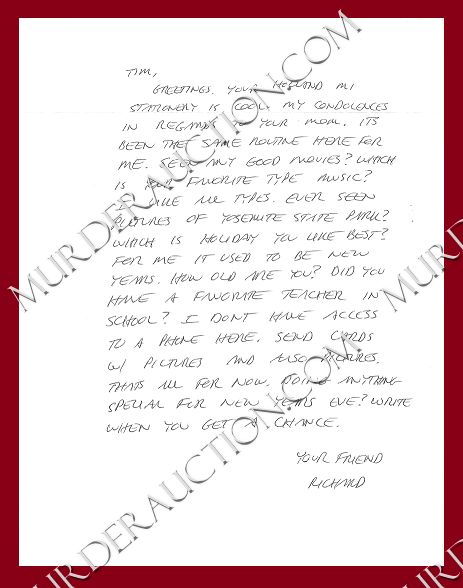 TIM,
GREETINGS. YOUR HOLLAND MI
STATIONERY IS COOL. MY CONDOLENCES
IN REGARDS TO YOUR MOM. ITS
BEEN THE SAME ROUTINE HERE FOR
ME. SEEN ANY GOOD MOVIES? WHICH
IS YOUR FAVORITE TYPE MUSIC?
I LIKE ALL TYPES. EVER SEEN
PICTURES OF YOSEMITE STATE PARK?
WHICH IS HOLIDAY YOU LIKE BEST?
FOR ME IT USED TO BE NEW
YEARS. HOW OLD ARE YOU? DID YOU
HAVE A FAVORITE TEACHER IN
SCHOOL? I DONT HAVE ACCESS
TO A PHONE HERE. SEND CARDS
W/ PICTURES AND ALSO PICTURES.
THATS ALL FOR NOW. DOING ANYTHING
SPECIAL FOR NEW YEARS EVE? WRITE
WHEN YOU GET A CHANCE.
YOUR FRIEND
RICHARD
MURDERAUCTION.COM
MURDERAUCTION.COM